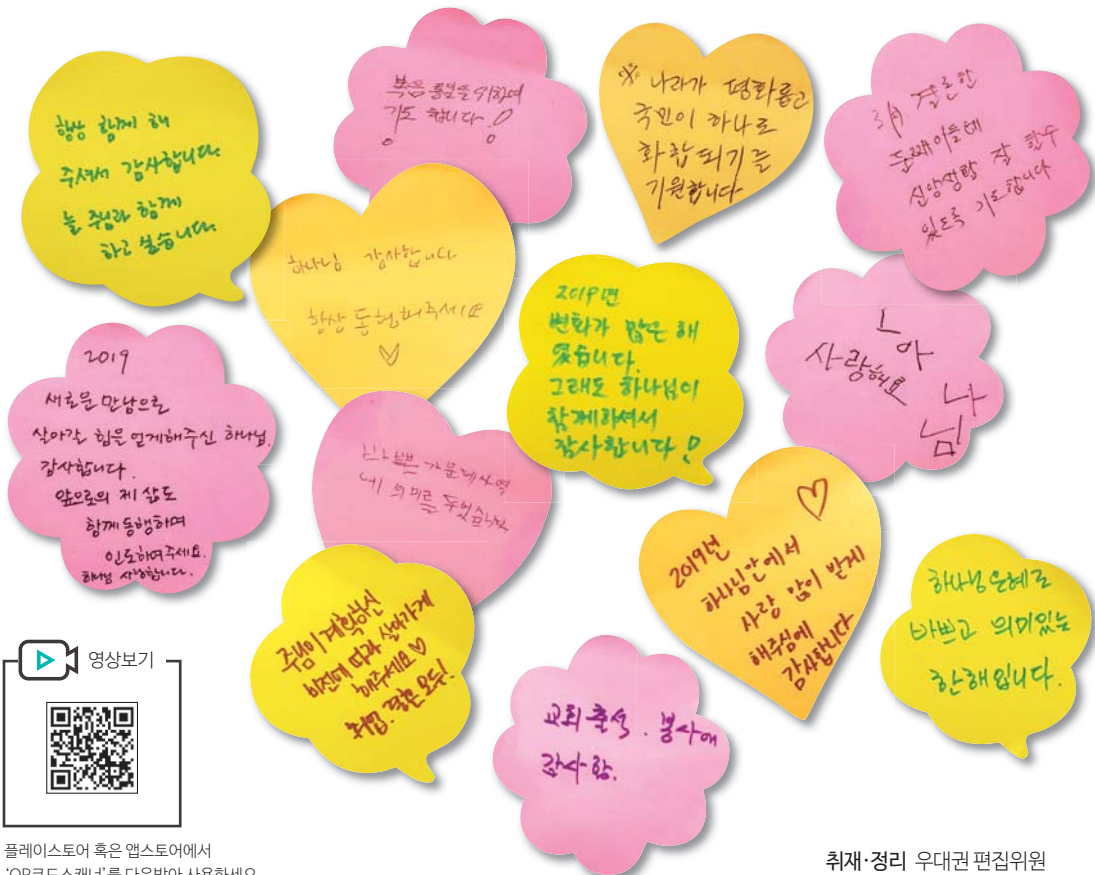 항상 함께 해
주셔서 감사합니다.
늘 주님과 함께
하고 싶습니다.
복음 통일을 위하여
기도 합니다!
※ 나라가 평화롭고
국민이 하나로
화합되기를
기원합니다
3月 결혼한
둘째아들에
신앙생활 잘 할수
있도록 기도합니다
하나님 감사합니다
항상 동행해주세요
2019년
변화가 많은 해
였습니다.
그래도 하나님이
함께하셔서
감사합니다!
사랑해요
2019
새로운 만남으로
살아갈 힘을 얻게해주신 하나님.
감사합니다.
앞으로의 제 삶도
함께 동행하며
인도하여주세요.
하나님 사랑합니다.
가운데 사역
에 의미를 두었습니다
2019년
하나님안에서
사랑 많이 받게
해주심에
감사합니다
하나님 은혜로
바쁘고 의미있는
한해입니다.
주님이 계획하신
비전에 따라 살아가게
해주세요♡
취업. 결혼 모두!
교회 출석. 봉사에
감사함.
영상보기
플레이스토어 혹은 앱스토어에서
'QR코드스캐너'를 다운받아 사용하세요
취재·정리 우대권 편집위원